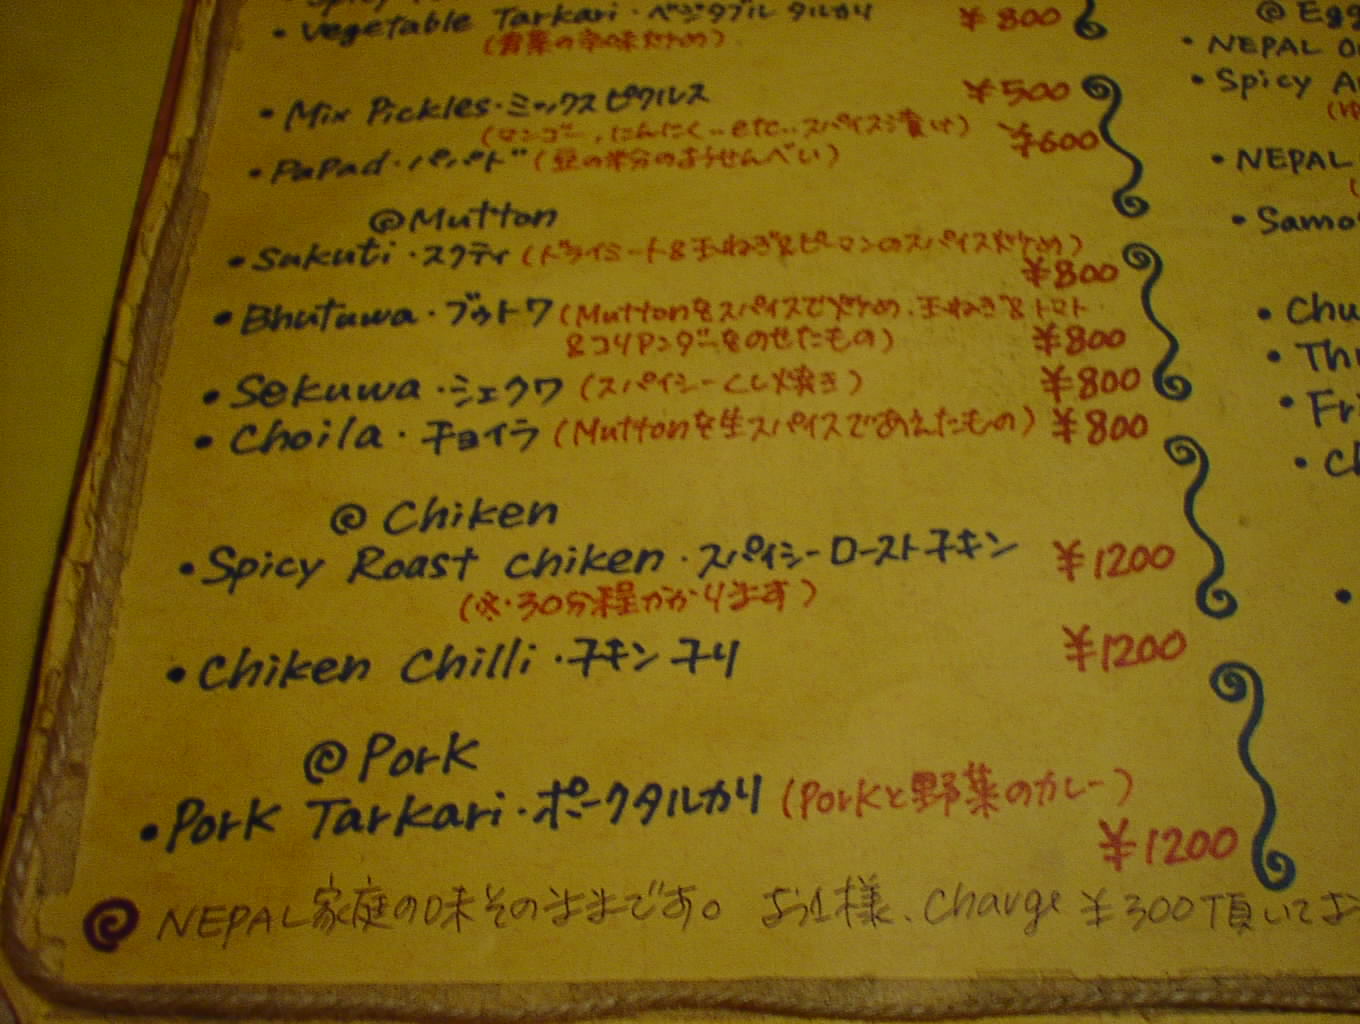 Spicy
• Vegetable Tarkari・ベジタブル タルカリ ¥800
(青菜の辛味炒め)
• Mix Pickles・ミックスピクルス ¥500
(マンゴー, にんにく..etc..スパイス漬け)
• PaPad・パパド (豆の半分のおうせんべい) ¥600
@Mutton
• Sukuti・スクティ (ドライミート&玉ねぎ&ピーマンのスパイス炒め)
¥800
• Bhutuwa・ブゥトワ (Muttonをスパイスで炒め、玉ねぎ&トマト
&コリアンダーをのせたもの) ¥800
• Sekuwa・シェクワ (スパイシーくし焼き) ¥800
• Choila・チョイラ (Muttonを生スパイスであえたもの) ¥800
@ Chiken
• Spicy Roast chiken・スパイシーローストチキン ¥1200
(※・30分程かかります)
• Chiken Chilli・チキン チリ ¥1200
@Pork
• Pork Tarkari・ポークタルカリ (Porkと野菜のカレー)
¥1200
NEPAL家庭の味そのままです。 お1人様、Charge ¥300頂いてお
@ Egg
• NEPAL
• Spicy
• NEPAL
• Samo
• Chu
• Th
• Fri
• Ch